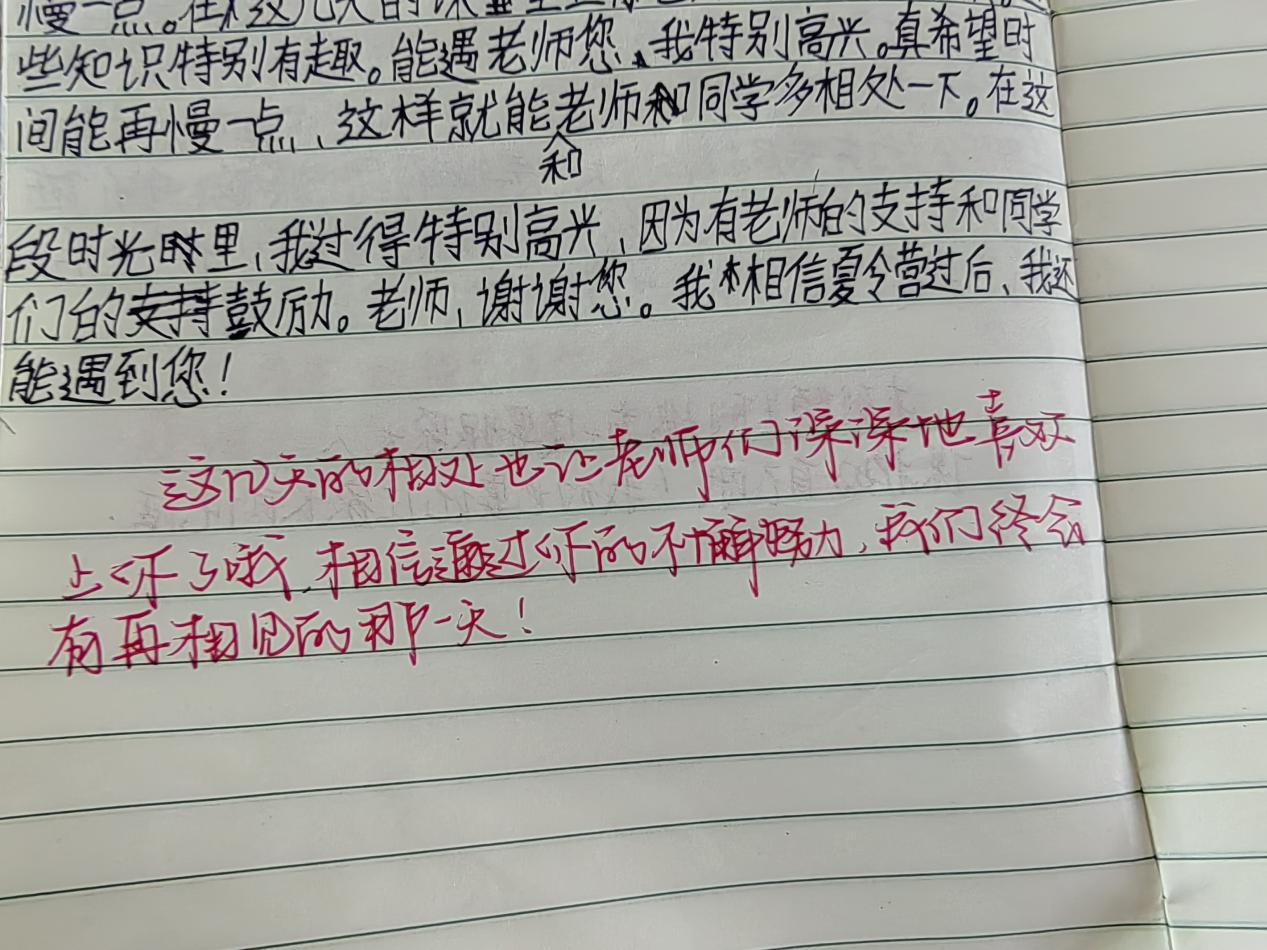 慢一点。在这几天的课堂里
些知识特别有趣。能遇老师您、我特别高兴。真希望时
间能再慢一点、这样就能老师和同学多相处一下。在这
和
段时光时里,我过得特别高兴、因为有老师的支持和同学
们的支持鼓励。老师,谢谢您。我相信夏令营过后、我还
能遇到您!
这几天的相处也让老师们深深地喜欢
上你了哦,相信通过你的不懈努力,我们终会
有再相见的那一天!